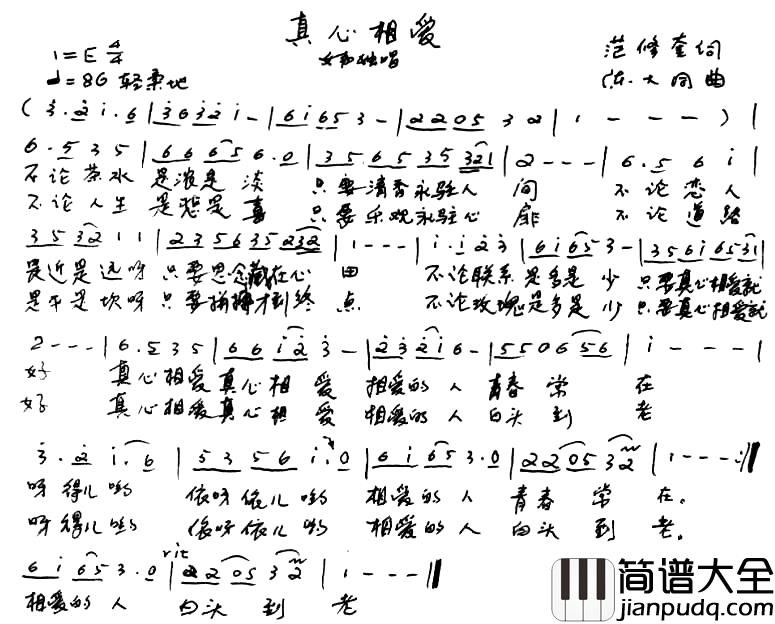 真心相爱
女声独唱
1=E 4/4
♩=86 轻柔地
范修奎词
陈大同曲
(3·2 1·6|3632 1-|6165 3-|2205 32|1---)|
6·5 35|6665 6·0|3565 35321|2---|6·5 61|
不论茶水 是浓是淡 只要清香永驻人间 不论恋人
不论人生 是悲是喜 只要乐观永驻心扉 不论道路
3532 11|235635232|1---|1·123|6165 3-|35616531|
是近是远呀 只要思念藏在心田 不论联系是多是少 只要真心相爱就
是平是坎呀 只要拼搏才到终点 不论玫瑰是多是少 只要真心相爱就
2---|6·535|6612 3-|2321 6-|5506 56|1---|
好 真心相爱真心相爱 相爱的人青春常在
好 真心相爱真心相爱 相爱的人白头到老
3·2 1·6|5356 1·0|6165 3·0|2205 32|1---:||
呀得儿哟 依呀依儿哟 相爱的人 青春常在。
呀得儿哟 依呀依儿哟 相爱的人 白头到老。
rit
6165 3·0|2205 32|1---||
相爱的人 白头到老
简谱大全
jianpudq.com